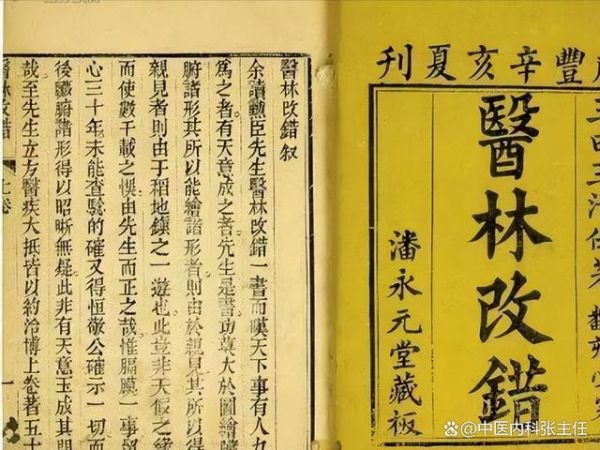 豐辛亥夏刊
醫林改錯
潘永元堂藏板
醫林改錯叙
余讀勳臣先生醫林改錯一書而嘆天下事有人
為之者有天意成之者先生是書功莫大於圖繪臟
腑諸形其所以能繪諸形者則由於親見其所以得
親見者則由于稻地鎮之一遊也此豈非天假之緣
而使數千載之悞由先生而正之哉惟膈膜一事留
心三十年未能查驗的確又得恒敬公確示一切而
後臟腑諸形得以昭晰無疑此非有天意玉成其間
哉至先生立方醫疾大抵皆以約治博上卷著五十
醫林改錯 上卷 一
@中医内科张主任